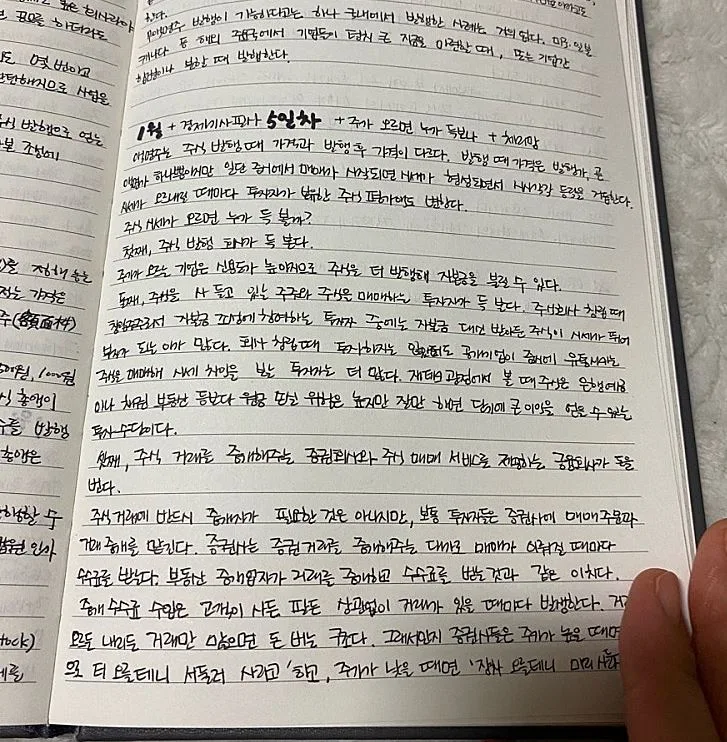 도 0몇 번이고
탄탄해지므로 사업을
주식 발행으로 얻는
자본 조성에
를 정해 놓는
적는 가격은
주(額面株)
500원, 1000원
식 총액이
수를 발행
총액은
발행할 수
법원 인가
tock)
세를
한다.
무액면주 발행이 가능하다고는 하나 국내에서 발행한 사례는 거의 없다. 미국, 일본
캐나다 등 해외 증권국에서 기업들이 덩치 큰 자금을 마련할 때, 또는 기업간
합병이나 분할 때 발행한다.
1월 + 경제기사 판다 5일차 + 주가 오르면 누가 득보나 + 채희망
액면주는 주식 발행 때 가격과 발행 후 가격이 다르다. 발행 때 가격은 발행가, 곧
액면가 하나뿐이지만 일단 증시에서 매매가 시작되면 시세가 형성되면서 시시각각 등락을 거듭한다.
시세가 오르내릴 때마다 투자자가 보유한 주식 평가액도 변한다.
주식 시세가 오르면 누가 득 볼까?
첫째, 주식 발행 회사가 득 본다.
주가가 오르는 기업은 신용도가 높아지므로 주식을 더 발행해 자본금을 불릴 수 있다.
둘째, 주식을 사 들고 있는 주주와 주식을 매매하는 투자자가 득 본다. 주식회사 창립 때
창립주주로서 자본금 조성에 참여하는 투자자 중에는 자본금 대고 받아둔 주식이 시세가 뛰어
부자가 되는 이가 많다. 회사 창립 때 투자하지는 않았어도 공개기업이 증시에 유통시키는
주식을 매매해 시세 차익을 보는 투자자는 더 많다. 재테크 관점에서 볼 때 주식은 은행예금
이나 채권 부동산 등보다 원금 떼일 위험은 높지만 잘만 하면 단기에 큰 이익을 얻을 수 있는
투자 수단이다.
셋째, 주식 거래를 중개해주는 증권회사와 주식 매매 서비스를 제공하는 금융회사가 득을
본다.
주식 거래에 반드시 중개자가 필요한 것은 아니지만, 보통 투자자들은 증권사에 매매 주문과
거래 중개를 맡긴다. 증권사는 증권 거래를 중개해주는 대가로 매매가 이뤄질 때마다
수수료를 받는다. 부동산 중개업자가 거래를 중개하고 수수료를 받는 것과 같은 이치다.
중개 수수료 수입은 고객이 사든 팔든 상관없이 거래가 있을 때마다 발생한다.
오르든 내리든 거래만 많으면 돈 버는 구조다. 그래서인지 증권사들은 주가가 높을 때면
으로 더 오를테니 서둘러 사라고' 하고, 주가가 낮을 때면 '장차 오를테니 미리 사